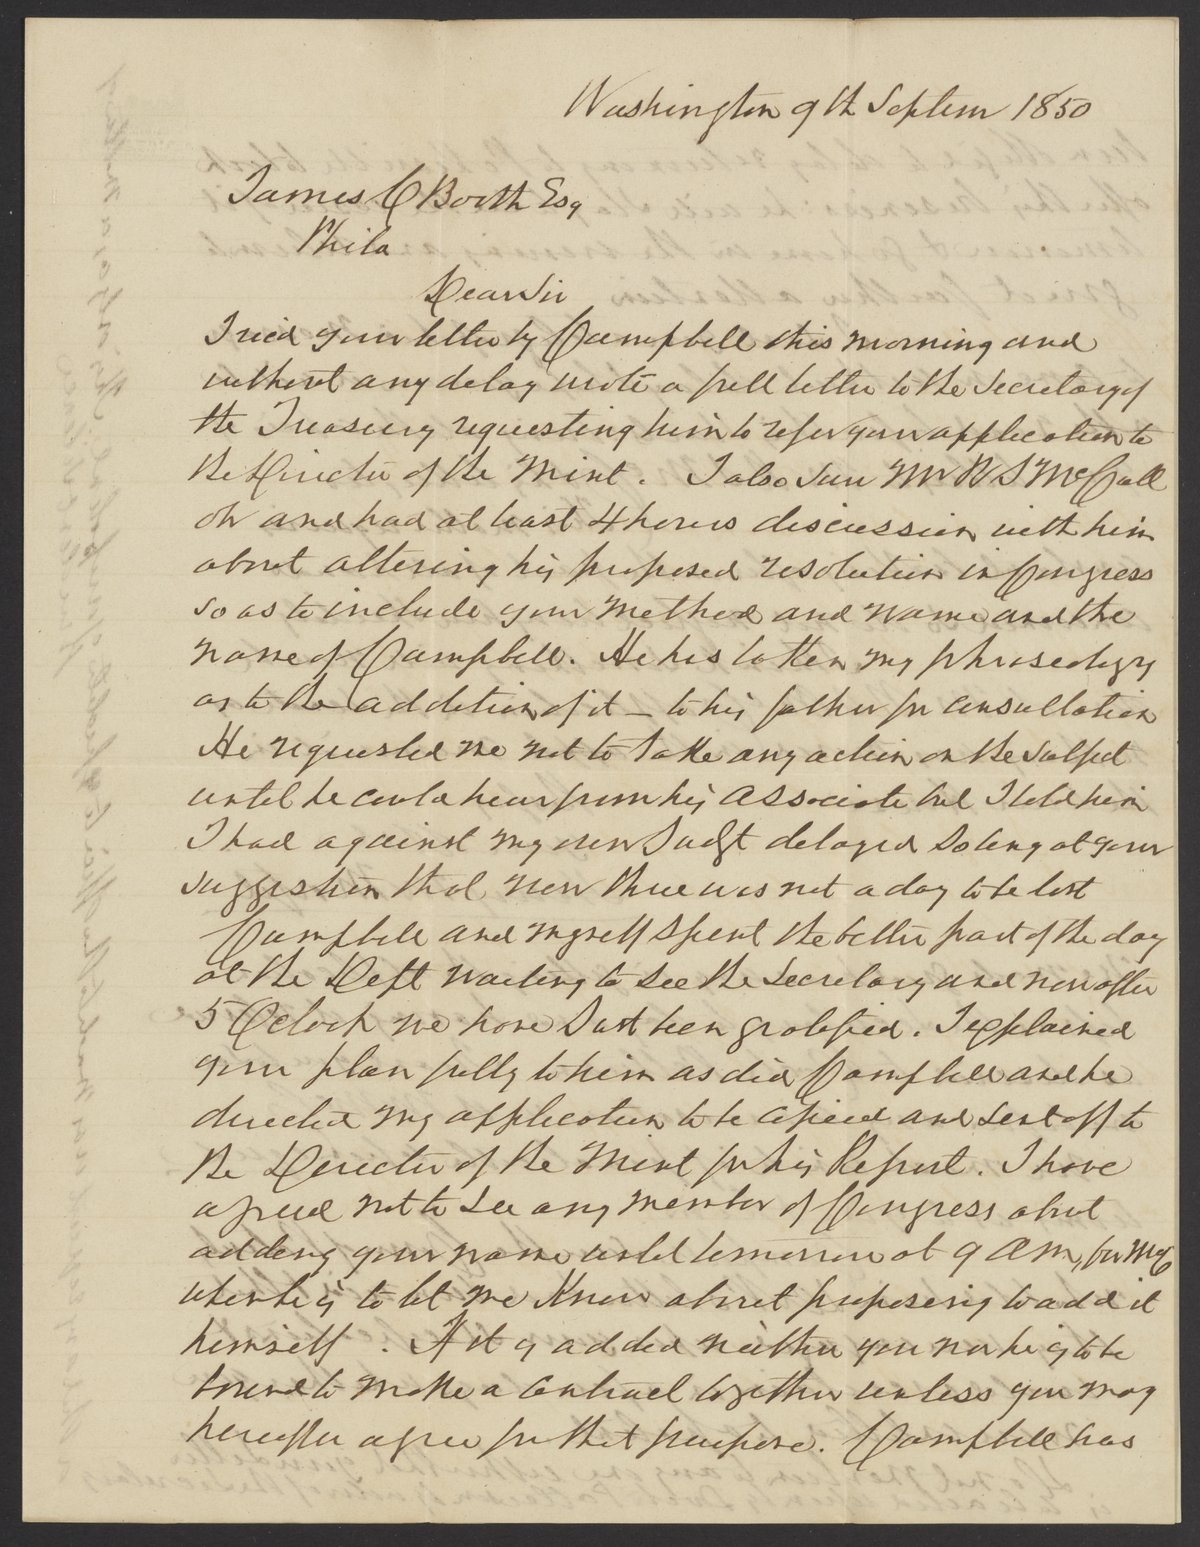 Washington 9th Septem 1850
James C Booth Esq
Phila
Dear Sir
I recd your letter by Campbell this morning and
without any delay wrote a full letter to the Secretary of
the Treasury requesting him to refer your application to
the Director of the Mint. I also saw Mr R S McCull
oh and had at least 4 hours discussion with him
about altering his proposed resolution in Congress
so as to include your method and name and the
name of Campbell. He has taken my phraseology
as to the addition of it – to his father for consultation
He requested me not to take any action on the subject
until he could hear from his associate but I told him
I had against my own Judgt delayed so long at your
suggestion that now there was not a day to be lost
Campbell and myself spent the better part of the day
at the Dept waiting to see the Secretary and now after
5 OClock we have Just been gratified. I explained
your plan fully to him as did Campbell and he
directed my application to be copied and sent off to
the Director of the Mint for his Report. I have
agreed not to see any member of Congress about
adding your name until tomorrow at 9 AM, for McC
when he is to let me Know about proposing to add it
himself. If it is added neither you nor he is to be
bound to make a contract together unless you may
hereafter agree for that purpose. Campbell has